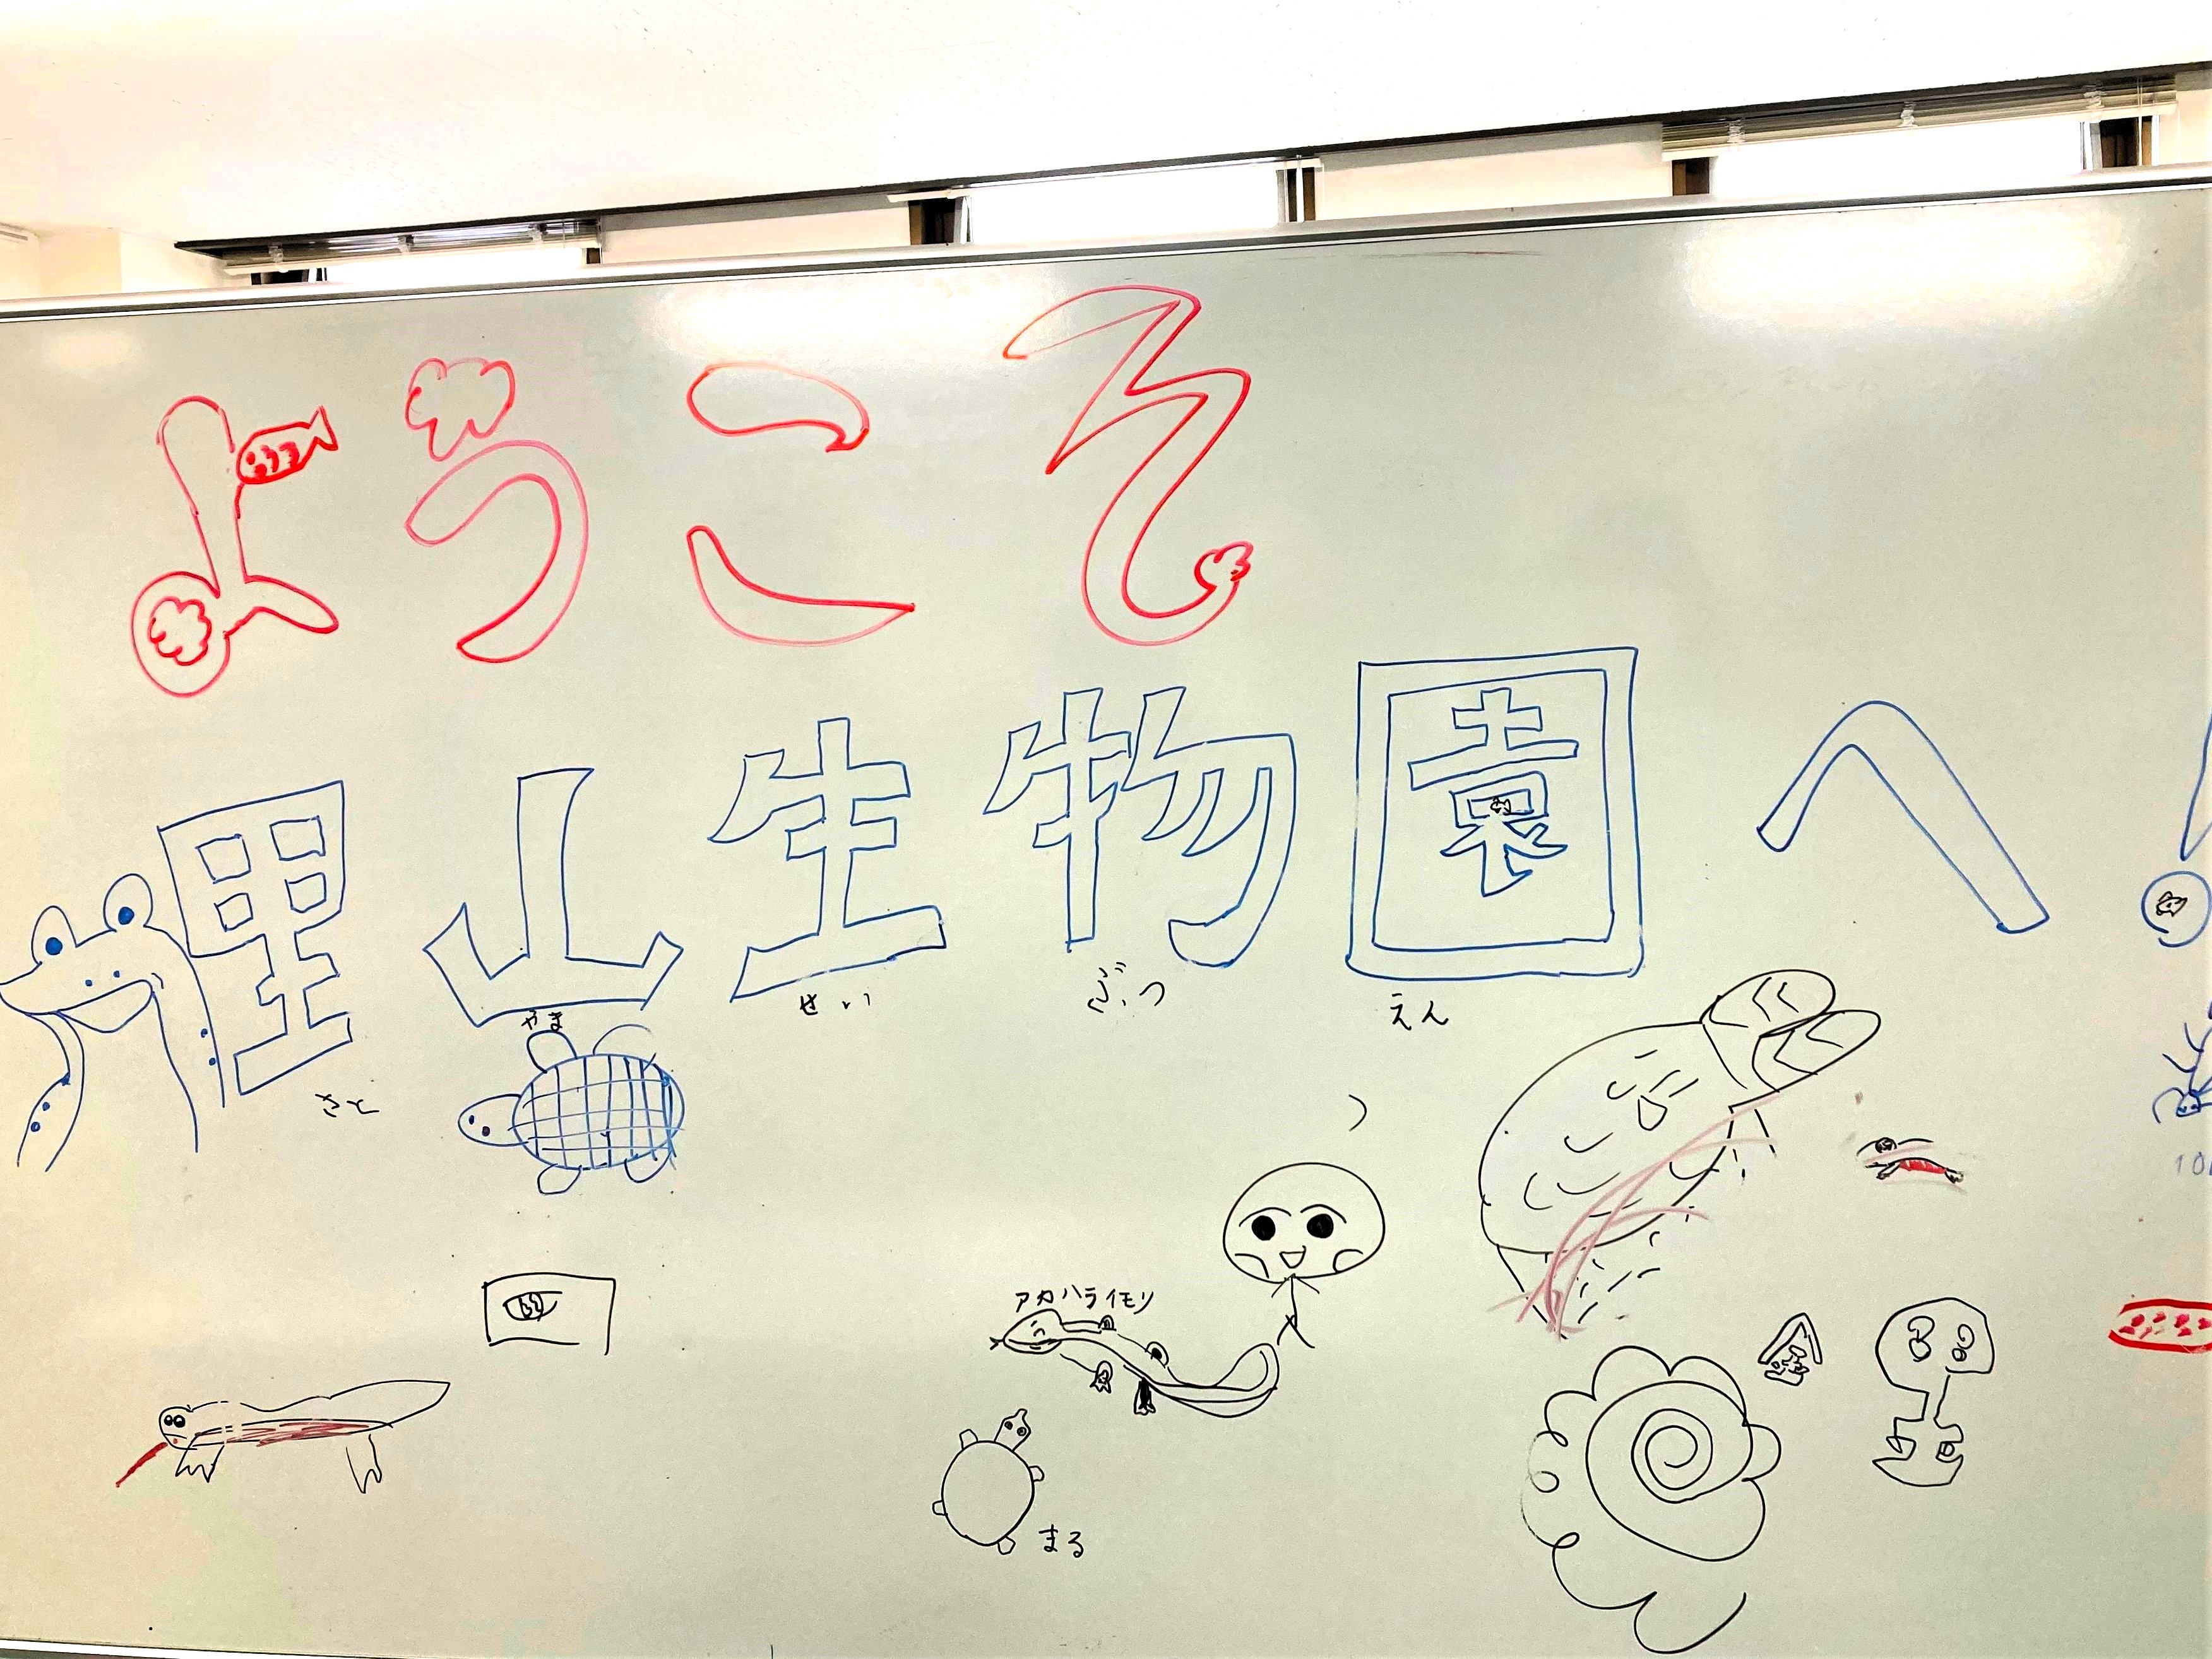 ようこそ
里山生物園へ!
さと やま せい ぶつ えん
アカハライモリ
まる